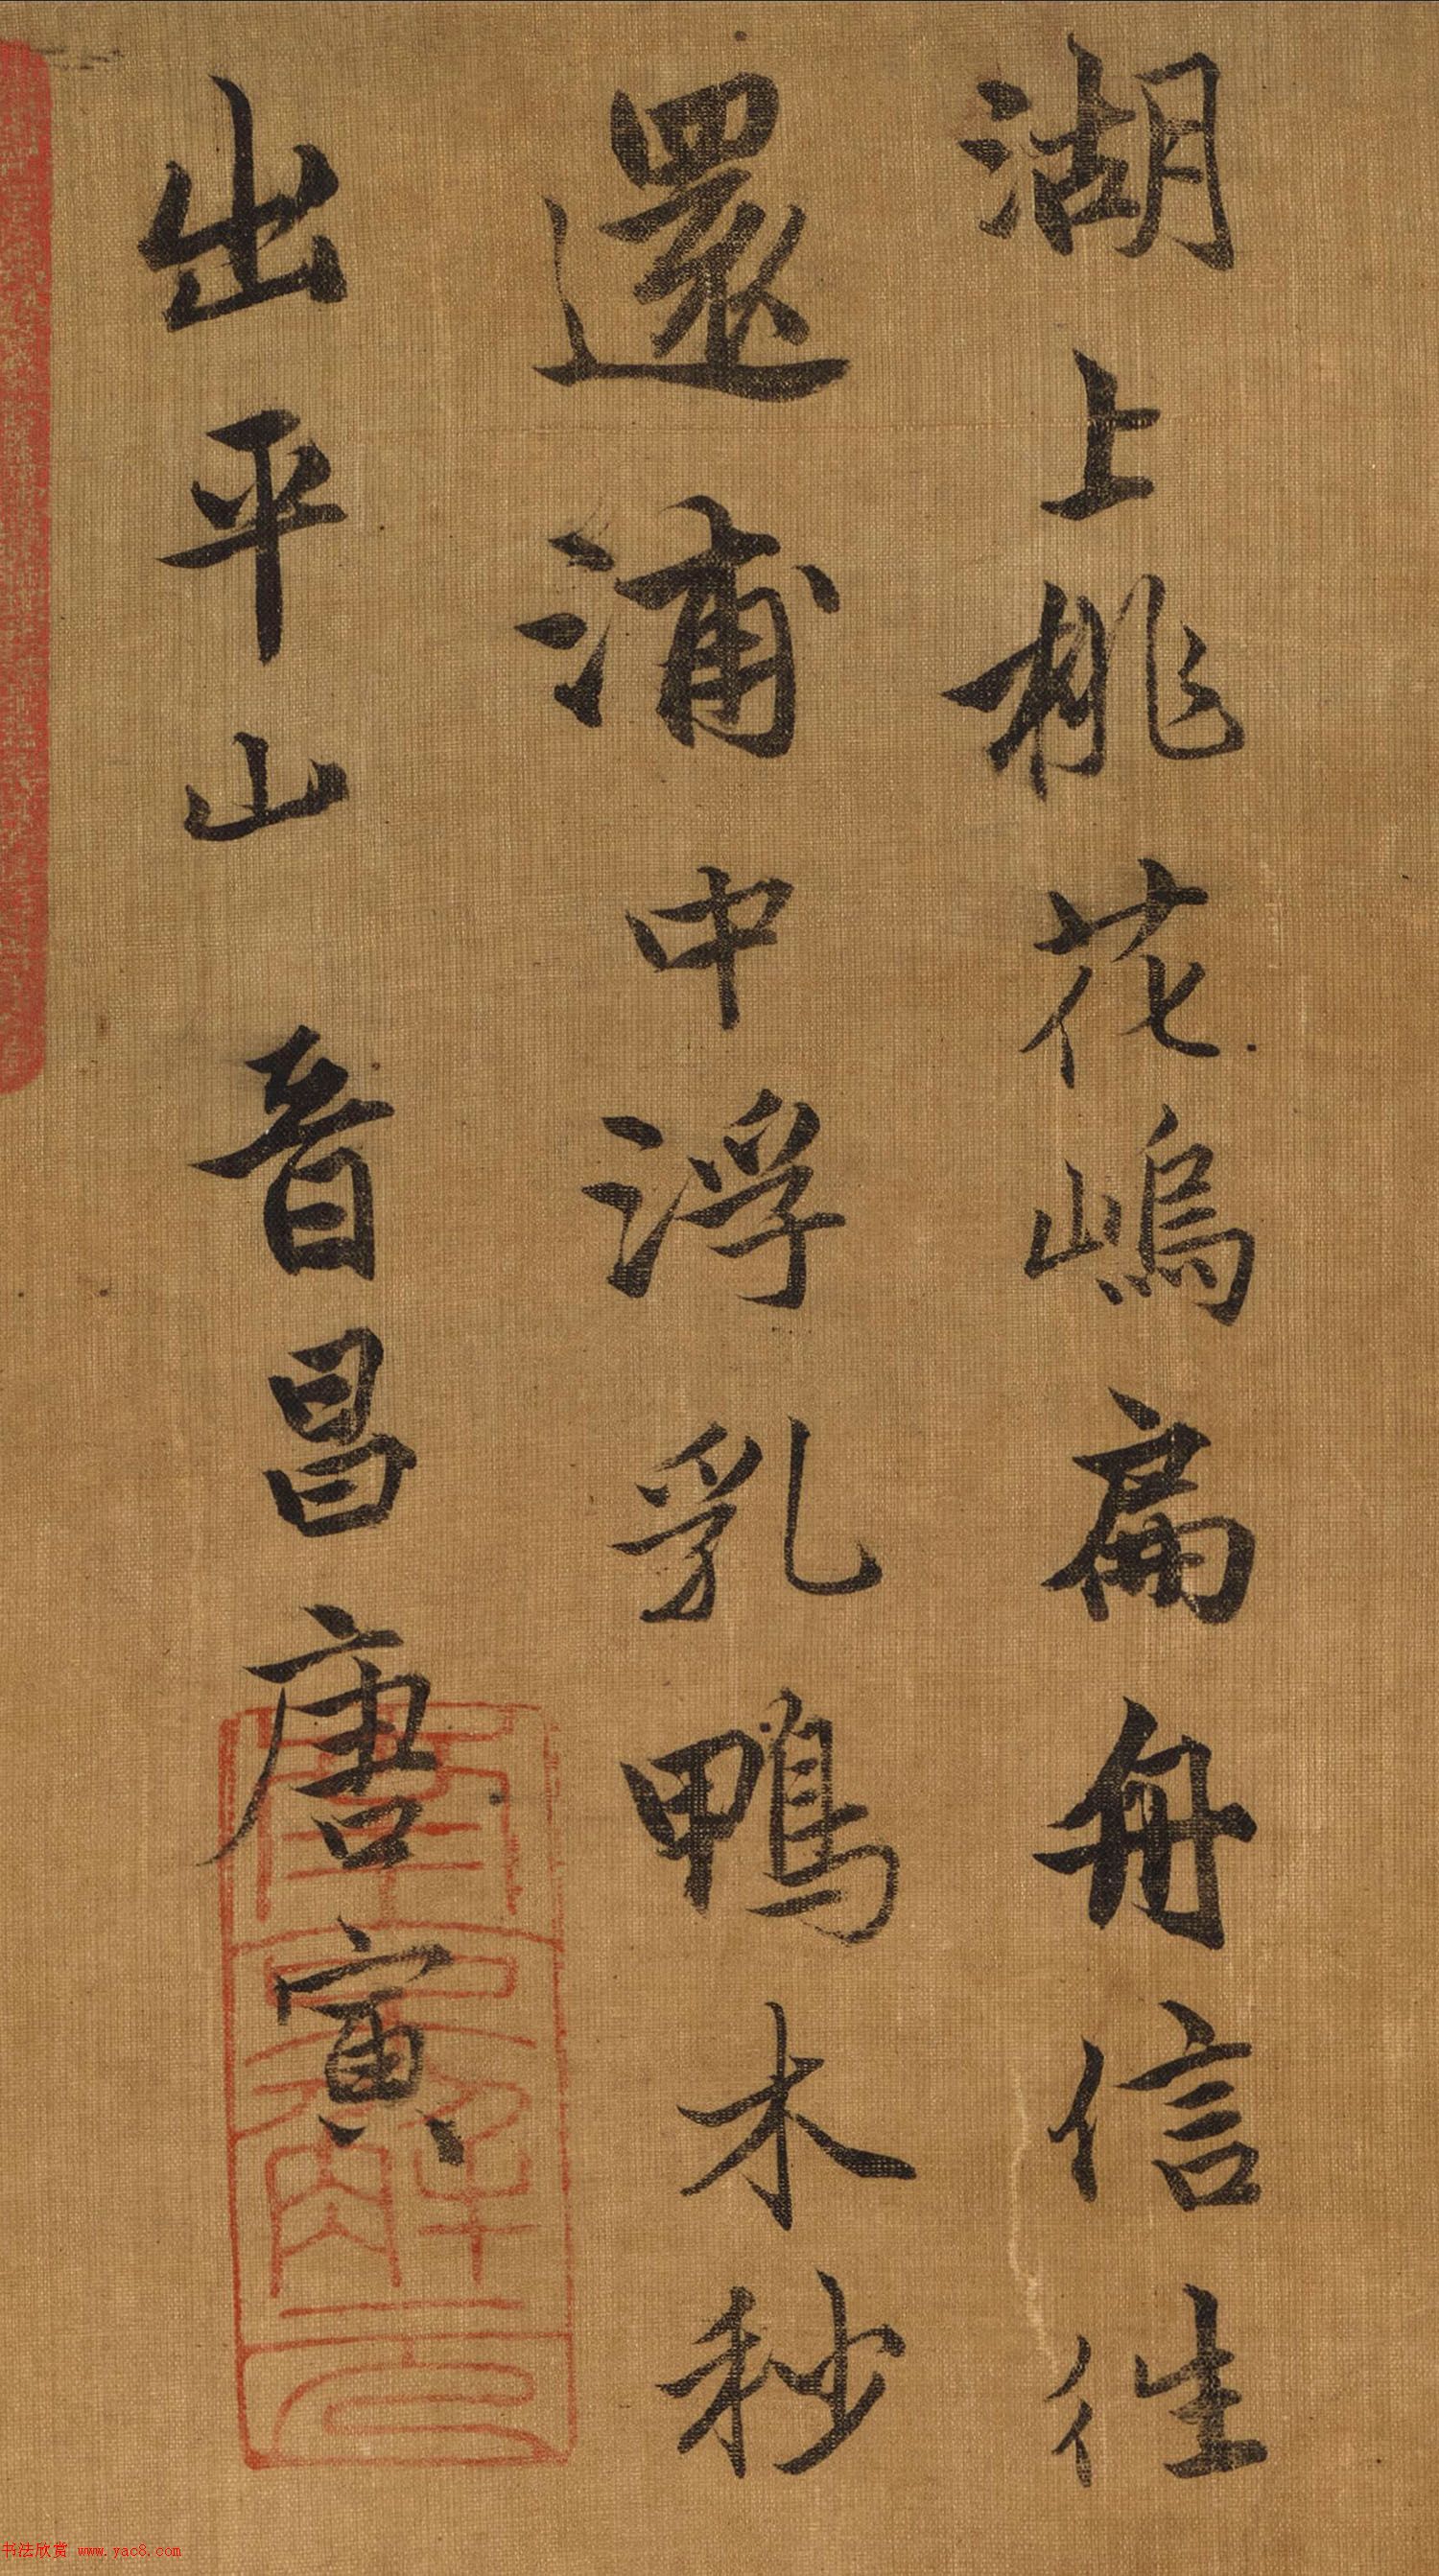 湖上桃花嶋扁舟信往
還浦中浮乳鴨木秒
出平山 晋昌唐寅
南京解元
书法欣赏 www.yac8.com